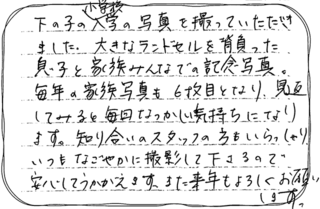 下の子の小学校入学の写真を撮っていただき
ました。大きなランドセルを背負った
息子と家族みんなでの記念写真。
毎年の家族写真も6枚目となり、見返
してみると毎回なつかしい気持ちになり
ます。知り合いのスタッフの方もいらっしゃり
いつもなごやかに撮影して下さるので
安心してうかがえます。また来年もよろしくお願い
します。